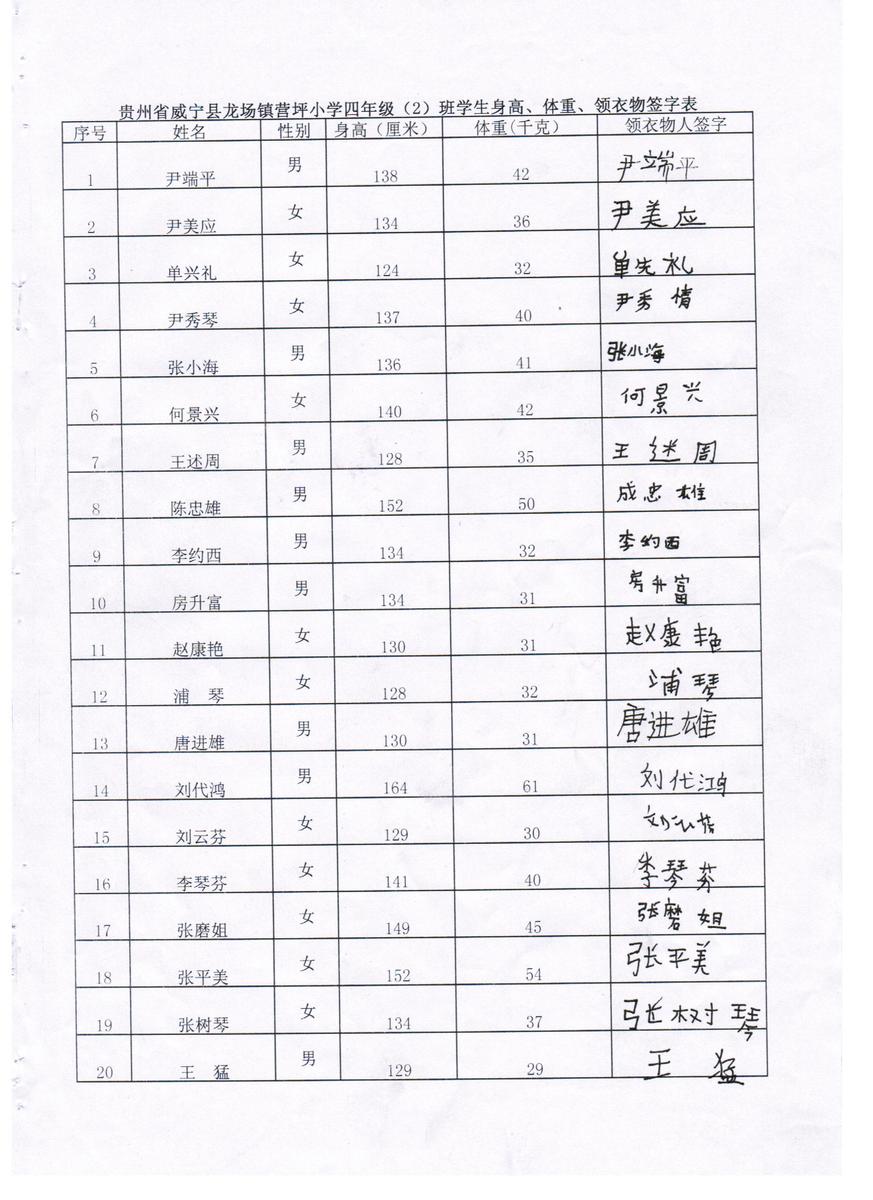 贵州省威宁县龙场镇营坪小学四年级（2）班学生身高、体重、领衣物签字表
序号 姓名 性别 身高（厘米） 体重(千克) 领衣物人签字
1 尹端平 男 138 42 尹端平
2 尹美应 女 134 36 尹美应
3 单兴礼 女 124 32 单先礼
4 尹秀琴 女 137 40 尹秀情
5 张小海 男 136 41 张小海
6 何景兴 女 140 42 何景兴
7 王述周 男 128 35 王述周
8 陈忠雄 男 152 50 成忠雄
9 李约西 男 134 32 李约西
10 房升富 男 134 31 房升富
11 赵康艳 女 130 31 赵康艳
12 浦 琴 女 128 32 浦琴
13 唐进雄 男 130 31 唐进雄
14 刘代鸿 男 164 61 刘代鸿
15 刘云芬 女 129 30
16 李琴芬 女 141 40 李琴芬
17 张磨姐 女 149 45 张磨姐
18 张平美 女 152 54 张平美
19 张树琴 女 134 37 张树琴
20 王 猛 男 129 29 王 猛